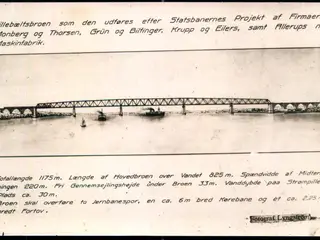 illebæltsbroen som den udføres efter Statsbanernes Projekt af Firmaer
Monberg og Thorsen, Grün og Bilfinger, Krupp og Eilers, samt Allerups n
Maskinfabrik.
Totallængde 1175 m. Længde af Hovedbroen over Vandet 825 m. Spændvidde af Midter
ningen 220 m. Fri Gennemsejlingshøjde under Broen 33 m. Vanddybde paa Strømpille
Plads ca. 30 m.
Broen skal overføre to Jernbanespor, en ca. 6 m bred Kørebane og et ca. 2,25
bredt Fortov.
Fotograf